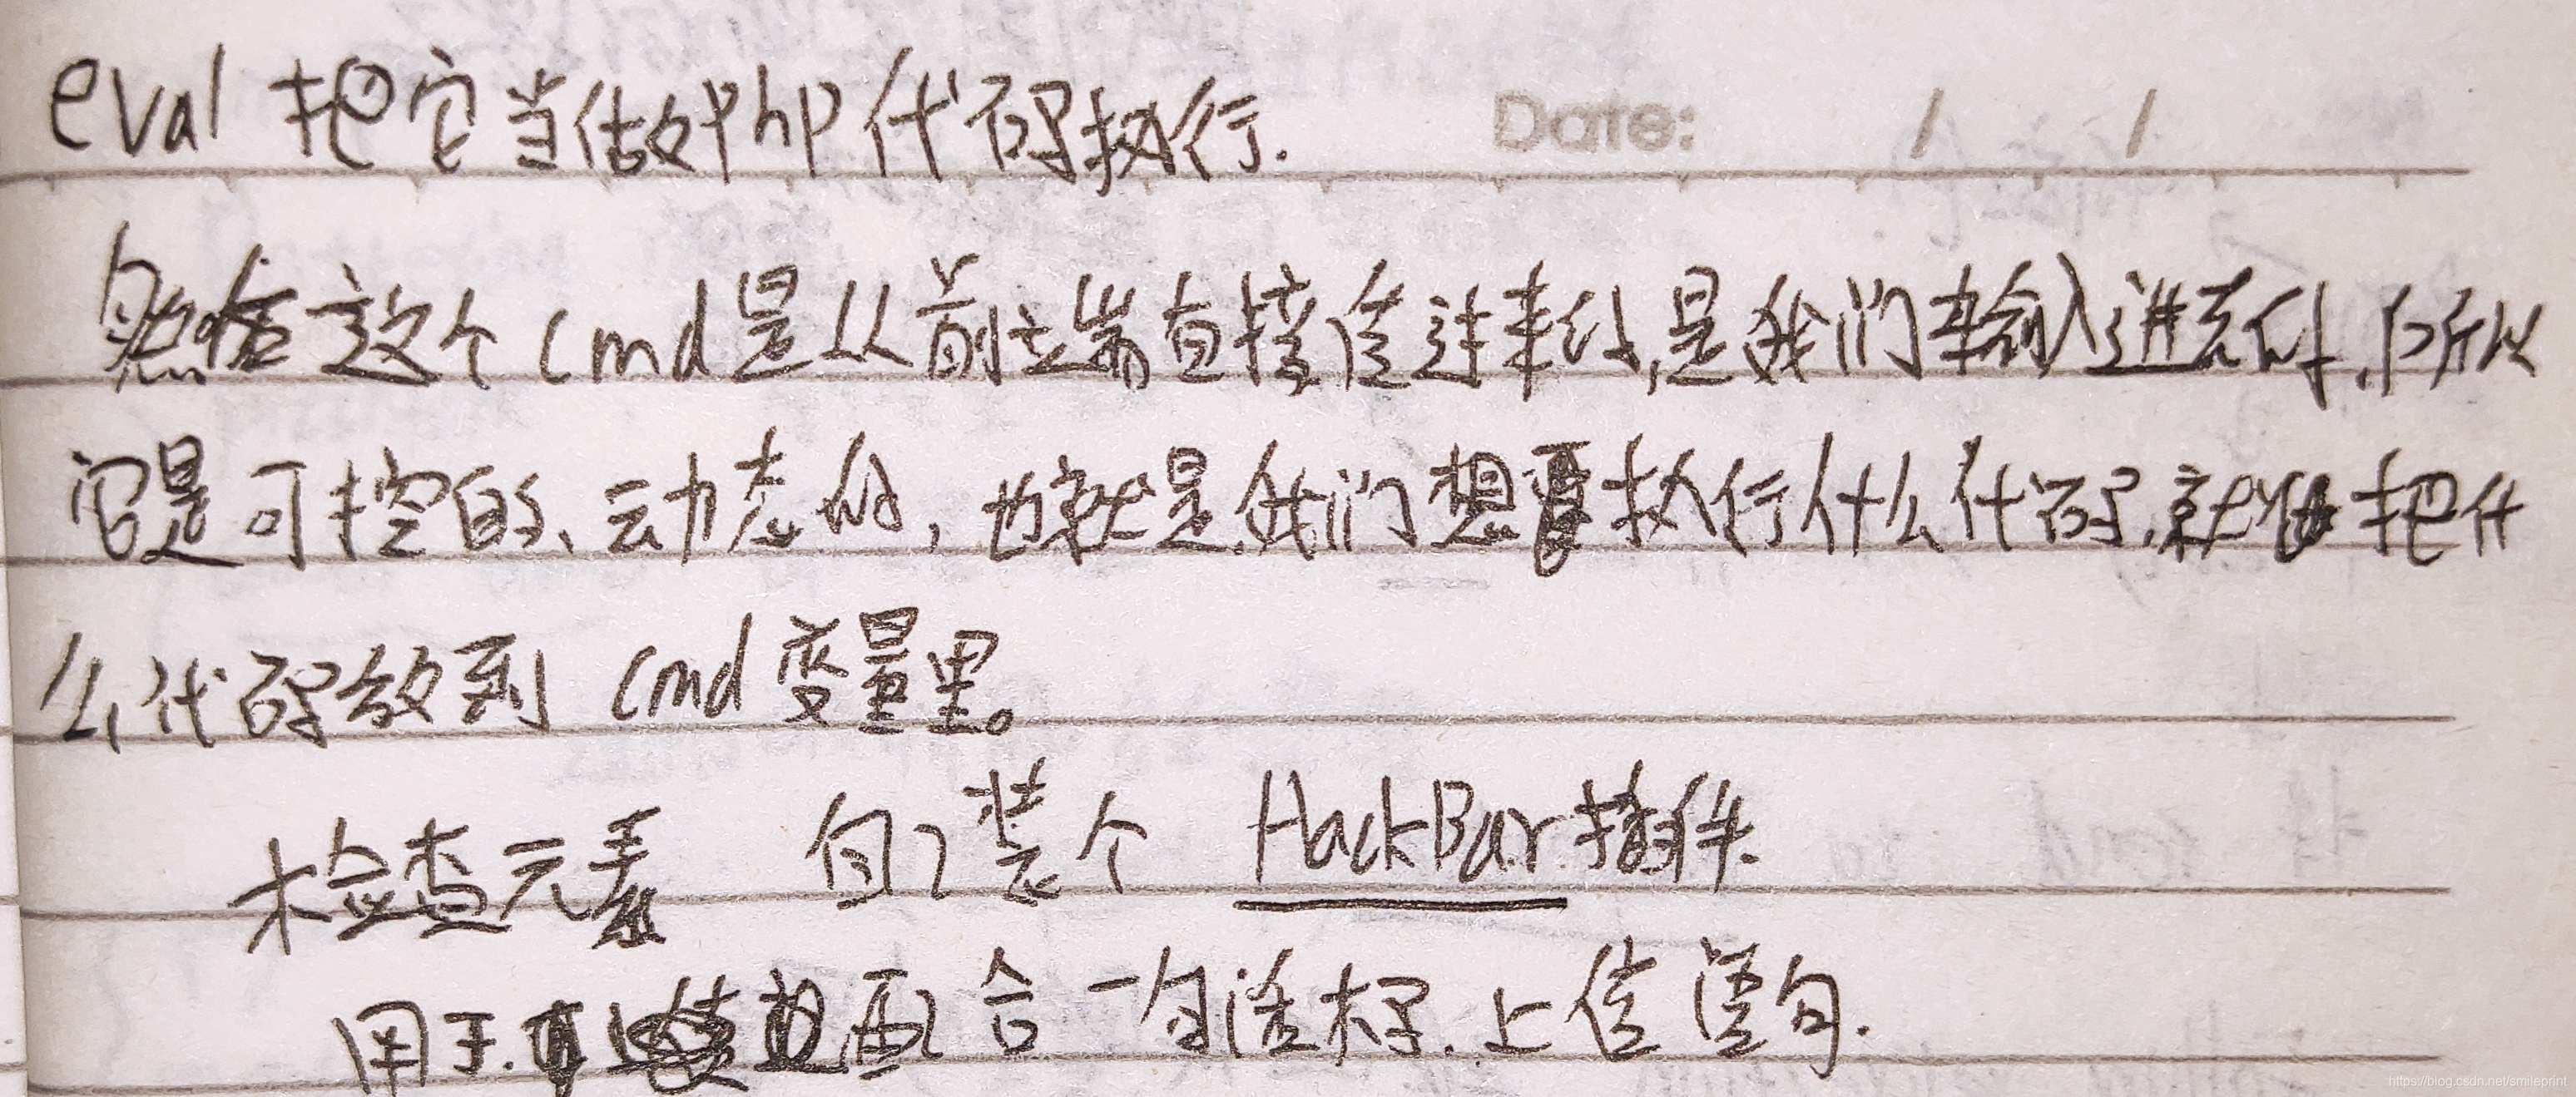 eval 把它当做php代码执行.
Date: / /
然后这个cmd是从前端直接传过来的,是我们来输入进去的.所以
它是可控的、动态的,也就是我们想要执行什么代码.就把什
么代码放到 cmd变量里。
检查元素 包装个 HackBar插件.
用于 配合一句话木马.上传语句.
https://blog.csdn.net/smileprint